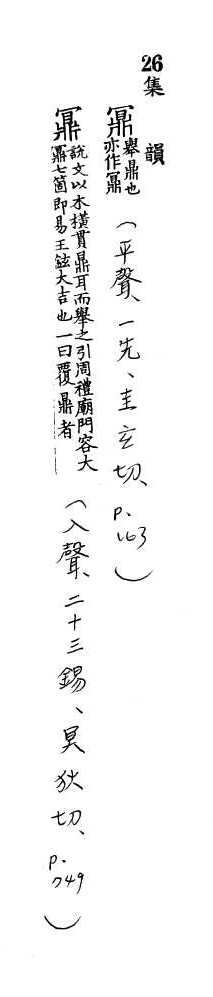 26集韻
鼏舉鼎也亦作鼏（平聲、一先、圭玄切、p.163）
鼏說文以木橫貫鼎耳而舉之引周禮廟門容大
鼏七箇即易玉鉉大吉也一曰覆鼎者（入聲、二十三錫、冥狄切、p.749）